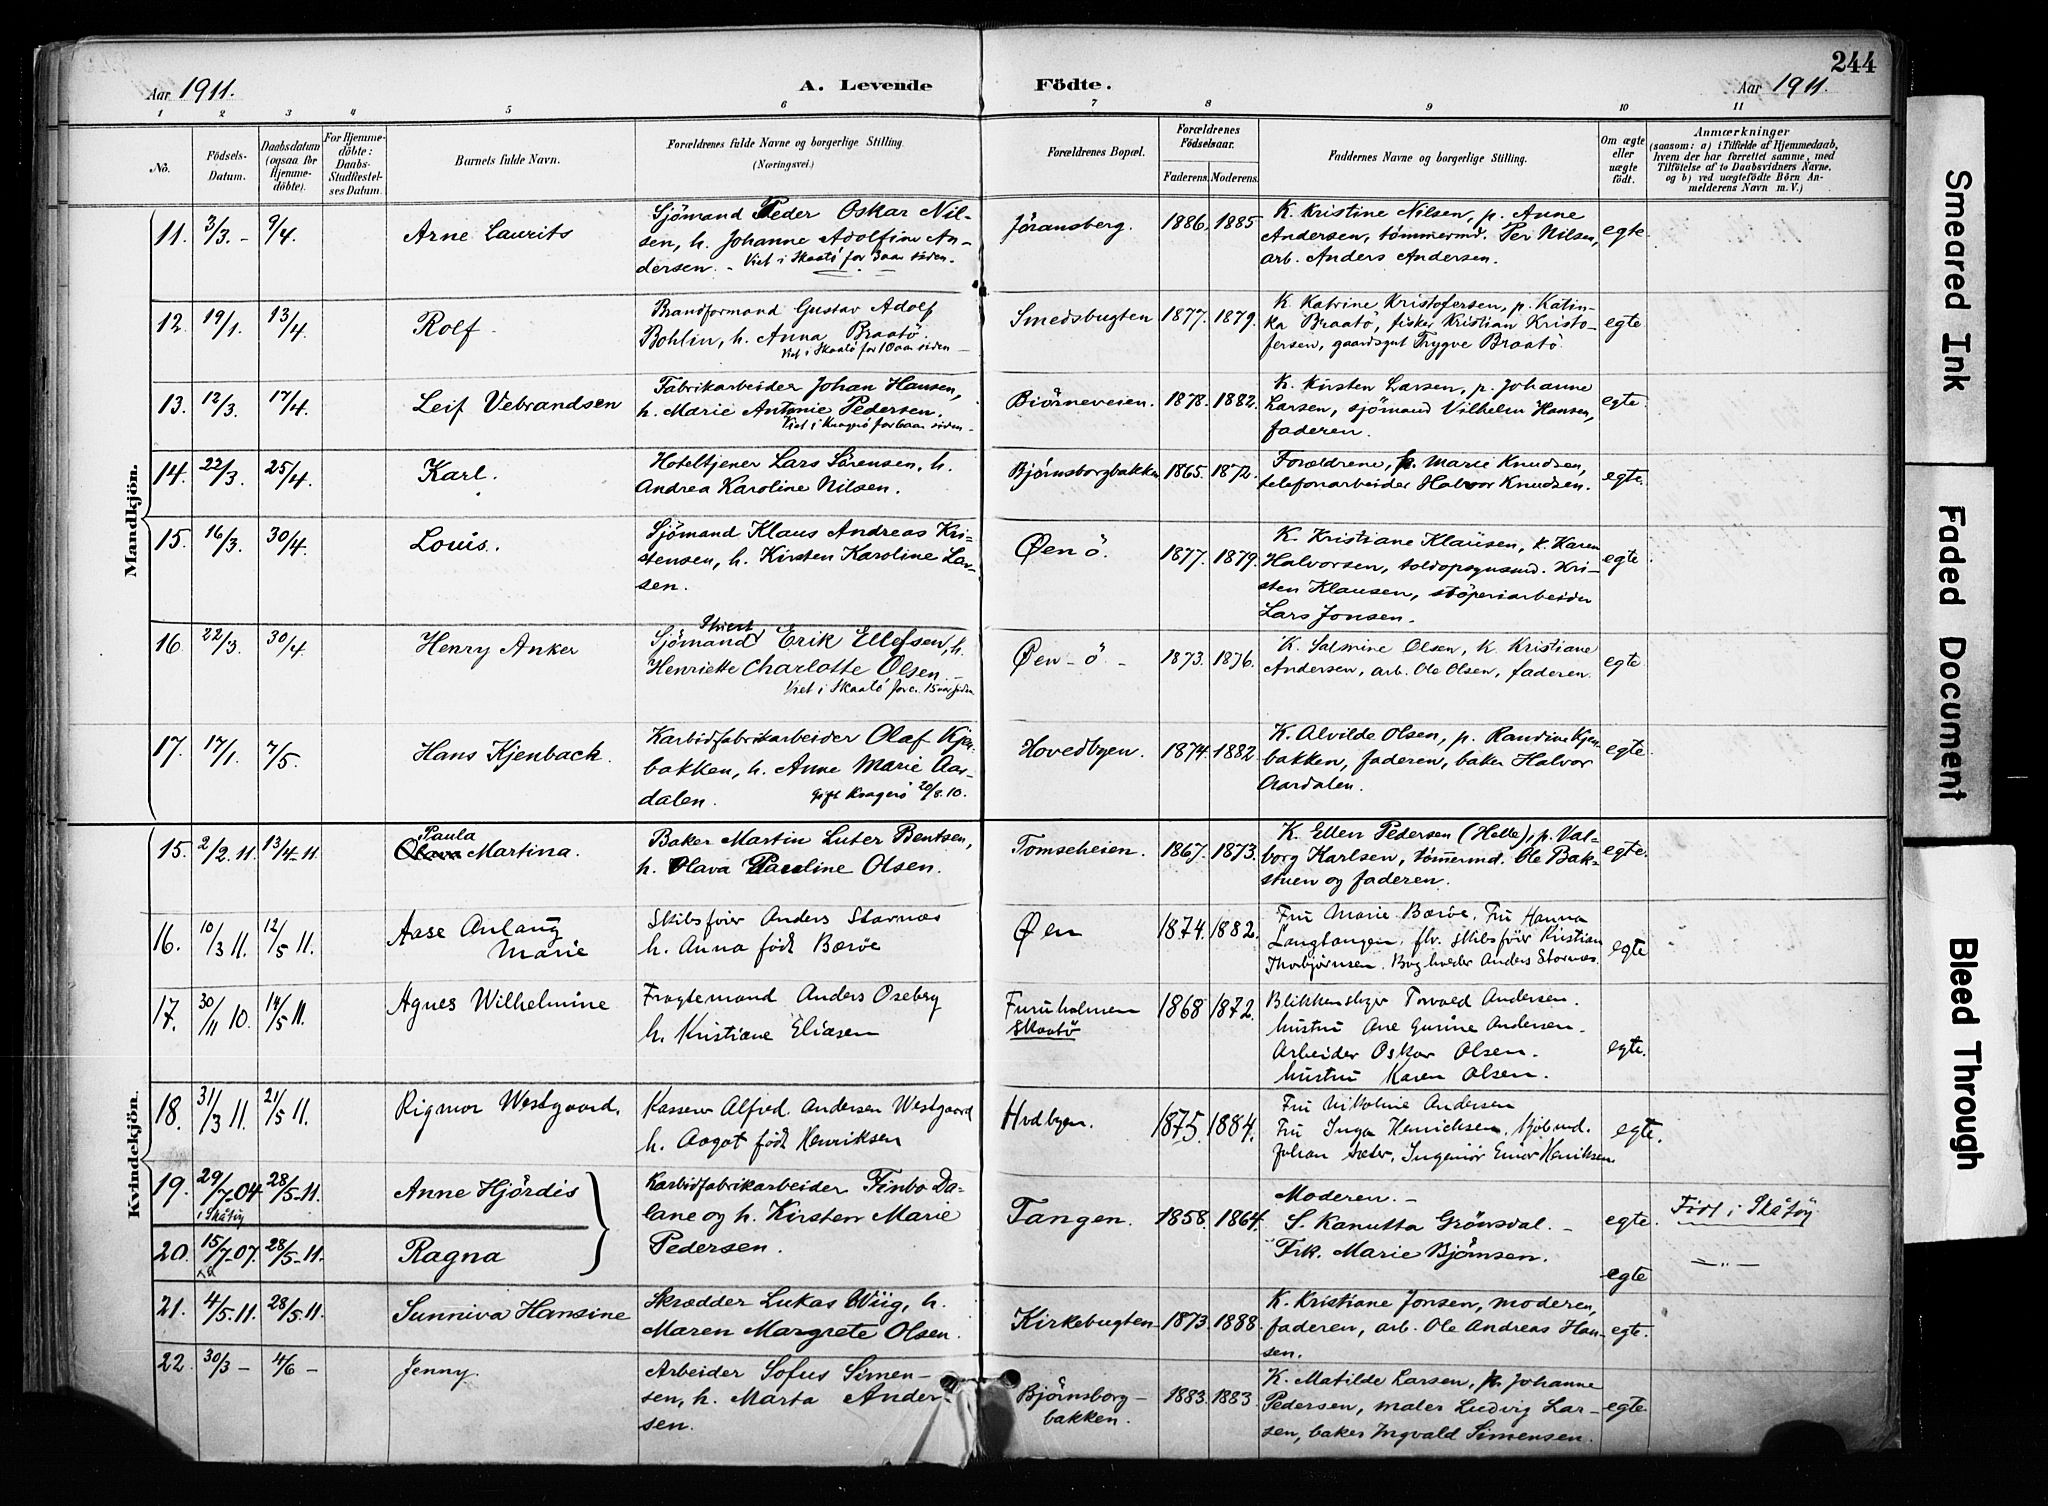 244
Aar 1911.
A. Levende Födte.
Aar 1911.
1 2 3 4 5 6 7 8 9 10 11
No.
Födsels-
Datum.
Daabsdatum
(ogsaa for
Hjemme-
döbte).
For Hjemme-
döbte:
Daabs-
Stadfæstel-
ses Datum.
Barnets fulde Navn.
Forældrenes fulde Navne og borgerlige Stilling.
(Næringsvei.)
Forældrenes Bopæl.
Forældrenes
Födselsaar.
Faderens. Moderens.
Faddernes Navne og borgerlige Stilling.
Om ægte
eller
uægte
födt.
Anmærkninger
(saasom: a) i Tilfælde af Hjemmedaab,
hvem der har forrettet samme, med
Tilföielse af to Daabsvidners Navne,
og b) ved uægtefödte Börn An-
melderens Navn m. V.)
Mandkjön.
11. 3/3.- 9/4. Arne Laurits
Sjömand Peder Oskar Nil-
sen, h. Johanne Adolfine An-
dersen. - Viet i Skaatö for 3 aar siden.
Jöransberg. 1886. 1885
K. Kristine Nilsen, p. Anne
Andersen, tömmermd. Per Nilsen,
arb. Anders Andersen.
egte.
12. 19/1. 13/4. Rolf.
Brandformand Gustav Adolf
Bohlin, h. Anna Braatö.
Viet i Skaatö for 10 aar siden
Smedsbugten 1877. 1879.
K. Katrine Kristofersen, p. Katin-
ka Braatö, fisker Kristian Kristo-
fersen, gaardsgut Trygve Braatö.
egte
13. 12/3. 17/4. Leif Vebrandsen
Fabrikarbeider Johan Hansen,
h. Marie Antonie Pedersen.
Viet i Kragerö for 6 aar siden.
Biörneveien. 1878. 1882.
K. Kirsten Larsen, p. Johanne
Larsen, sjömand Vilhelm Hansen,
faderen.
egte.
14. 22/3. 25/4. Karl.
Hoteltjener Lars Sörensen, h.
Andrea Karoline Nilsen.
Bjömsborgbakken 1865. 1872.
Forældrene, p. Marie Knudsen,
telefonarbeider Halvor Knudsen.
egte.
15. 16/3. 30/4. Louis.
Sjömand Klaus Andreas Kri-
stensen, h. Kirsten Karoline Lar-
sen.
Øen ö. 1877. 1879.
K. Kristiane Klausen, K. Karen
Halvorsen, toldopsynsmd. Kri-
sten Klausen, stöperiarbeider
Lars Jonsen.
egte
16. 22/3. 30/4. Henry Anker
Sjömand Erik Ellefsen, h.
Henriette Charlotte Olsen. -
Viet i Skaatö for c. 15 aar siden
Øen - ö - 1873. 1876.
K. Salmine Olsen, K. Kristiane
Andersen, arb. Ole Olsen, faderen.
egte
17. 17/1. 7/5. Hans Kjenback.
Karbidfabrikarbeider Olaf Kjen-
bakken, h. Anne Marie Aar-
dalen. Gift Kragerö 20/8.10.
Hovedbyen. 1874. 1882
K. Alvilde Olsen, p. Randine Kjen-
bakken, faderen, baker Halvor
Aardalen.
egte.
Kvindekjön.
15. 2/2.11. 13/4-11. Paula
Olava Martina.
Baker Martin Luter Bentsen,
h. Olava Pauline Olsen.
Tomseheien. 1867. 1873.
K. Ellen Pedersen (Helle), p. Val-
borg Karlsen, tömmermd. Ole Bak-
stuen og faderen.
egte.
16. 10/3 11. 12/5 11. Aase Anlaug
Marie
Skibsförer Anders Stornæs
h. Anna född Barve
Øen 1874. 1882.
Fru Marie Barve. Fru Hanna
Langtangen, fhv. skibsförer Kristian
Thorbjörnsen. Bogholder Anders Stornæs.
egte
17. 30/11 10. 14/5 11. Agnes Wilhelmine
Fragtemand Anders Oseberg
h. Kristiane Eliasen
Furuholmen
Skaatö
1868 1872.
Blikkenslager Torvald Andersen.
hustru Ane Gurine Andersen.
Arbeider Oskar Olsen.
hustru Karen Olsen.
egte.
18. 31/3 11. 21/5 11. Rigmor Westgaard.
Kasserer Alfred Andersen Westgaard
h. Aagot född Henriksen
Hvdbyen. 1875. 1884.
Fru Nikoline Andersen
Fru Inga Henrichsen.
Johan Sæter, Ingeniör Einar Henriksen.
egte.
19. 29/7-04. 28/5-11. Anne Hjördis
i Skåtöy
Karbidfabrikarbeider Finbo Da-
lane og h. Kirsten Marie
Pedersen.
Tangen. 1858. 1864.
Moderen. -
S. Kanutta Grönsdal. -
Frk. Marie Björnsen.
egte.
Födt i Skåtöy
20. 15/7-07. 28/5-11. Ragna
egte
-"-
21. 4/5.11. 28/5.11. Sunniva Hansine
Skrædder Lukas Wiig, h.
Maren Margrete Olsen.
Kirkebugten 1873. 1888.
K. Kristiane Jonsen, moderen,
faderen, arb. Ole Andreas Han-
sen.
egte.
22. 30/3 - 4/6 - Jenny.
Arbeider Sofus Simen-
sen, h. Marta Ander-
sen.
Björnsborg-
bakken.
1883. 1883.
K. Matilde Larsen, p. Johanne
Pedersen, maler Ludvig Lar-
sen, baker Ingvald Simensen.
egte.
Smeared Ink
Faded Document
Bleed Through